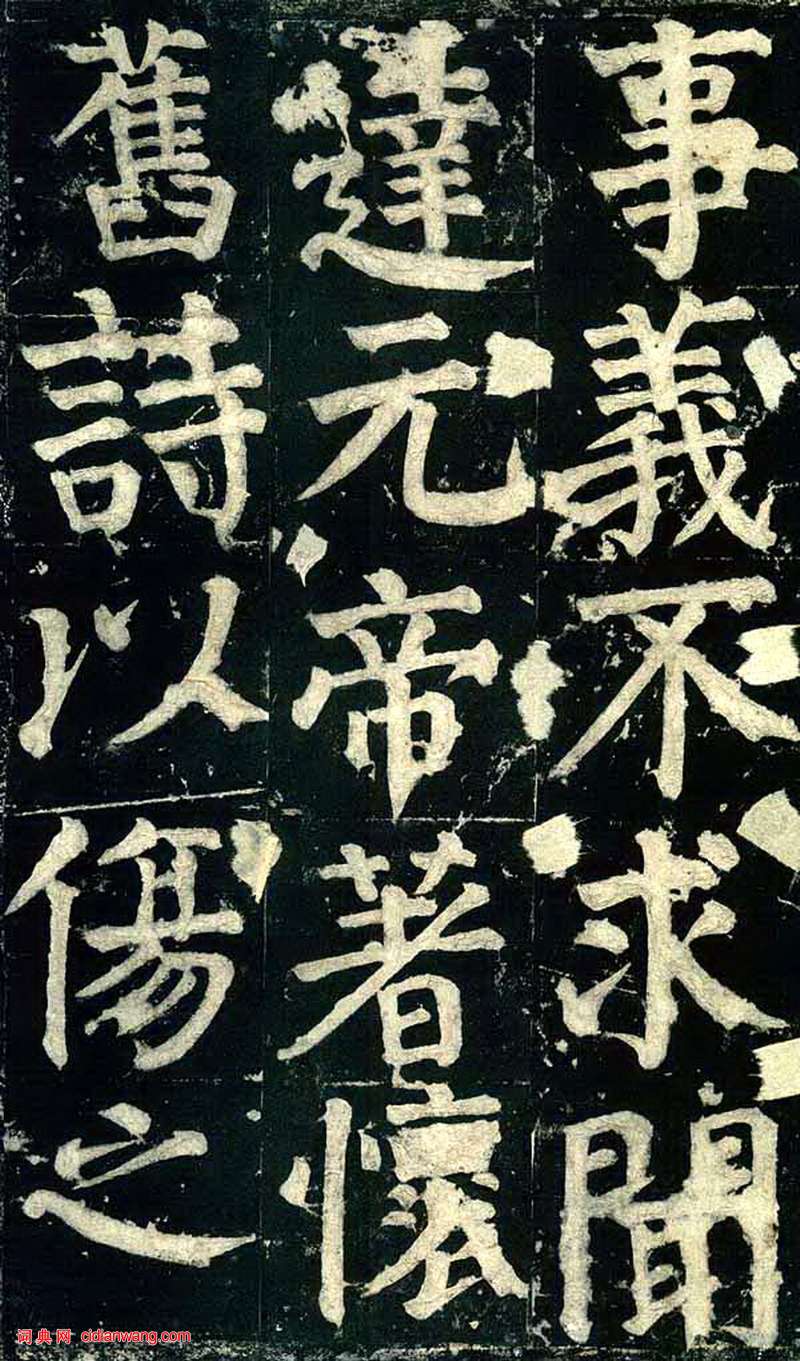 事義不求聞
達元帝著懷
舊詩以傷之
词典网 cidianwang.com